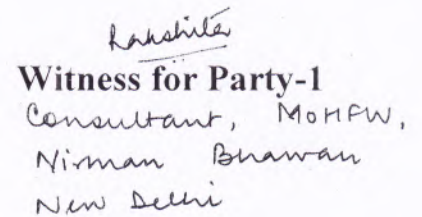 Rakshita
Witness for Party-1
Consultant, MOHFW,
Nirman Bhawan
New Delhi